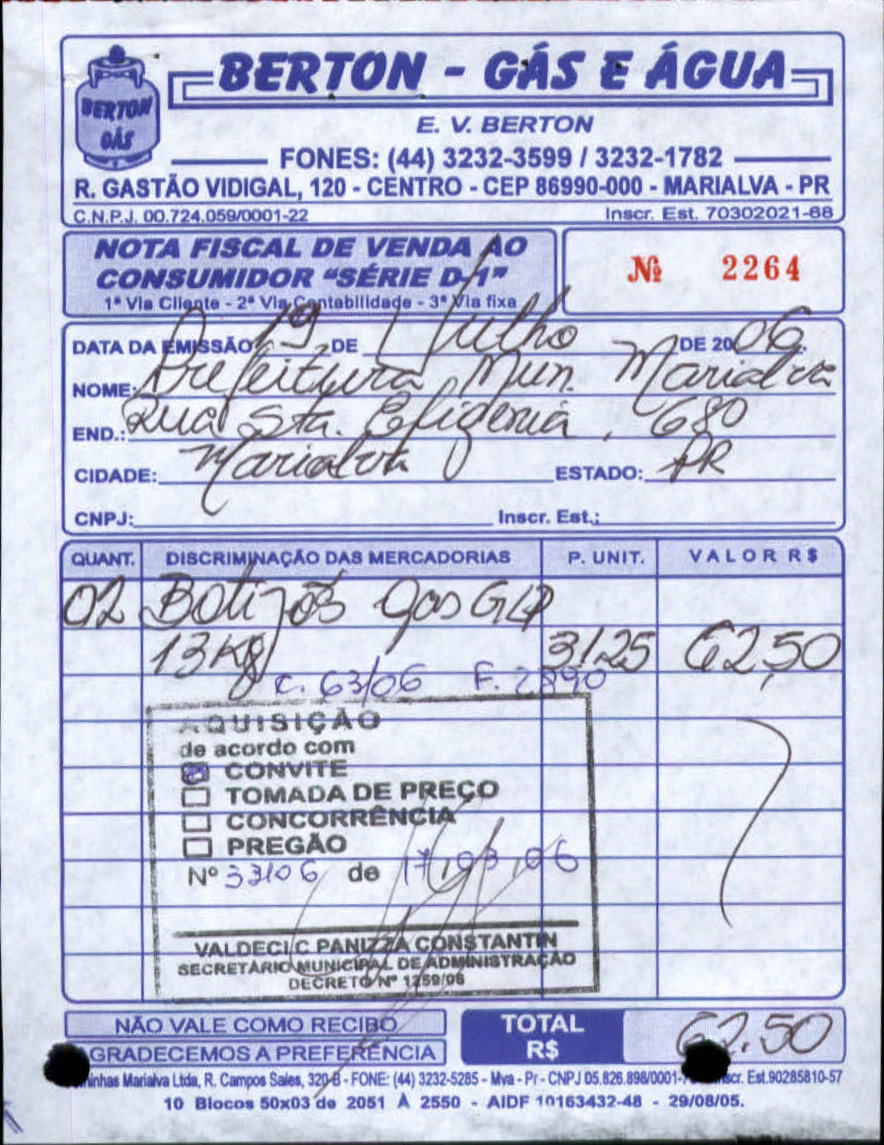 BERTON GÁS
BERTON - GÁS E ÁGUA
E. V. BERTON
FONES: (44) 3232-3599 / 3232-1782
R. GASTÃO VIDIGAL, 120 - CENTRO - CEP 86990-000 - MARIALVA - PR
C.N.P.J. 00.724.059/0001-22 Inscr. Est. 70302021-68
NOTA FISCAL DE VENDA AO
CONSUMIDOR "SÉRIE D-1"
1ª Via Cliente - 2ª Via Contabilidade - 3ª Via fixa
Nº 2264
DATA DA EMISSÃO 19 DE Julho DE 2006.
NOME: Prefeitura Mun. Marialva
END.: Rua Sta. Efigenia, 680
CIDADE: Marialva ESTADO: PR
CNPJ: Inscr. Est.:
QUANT. DISCRIMINAÇÃO DAS MERCADORIAS P. UNIT. VALOR R$
02 Botijos gas GLP
13 Kg 31,25 62,50
C. 63/06 F. 2890
AQUISIÇÃO
de acordo com
CONVITE
TOMADA DE PREÇO
CONCORRÊNCIA
PREGÃO
Nº 33/06 de 17/03/06
VALDECI C PANIZZA CONSTANTIN
SECRETÁRIO MUNICIPAL DE ADMINISTRAÇÃO
DECRETO Nº 1259/06
NÃO VALE COMO RECIBO
GRADECEMOS A PREFERÊNCIA
TOTAL R$ 62.50
Marialva Ltda, R. Campos Sales, 320-B - FONE: (44) 3232-5285 - Mva - Pr - CNPJ 05.826.898/0001- Est.90285810-57
10 Blocos 50x03 de 2051 À 2550 - AIDF 10163432-48 - 29/08/05.